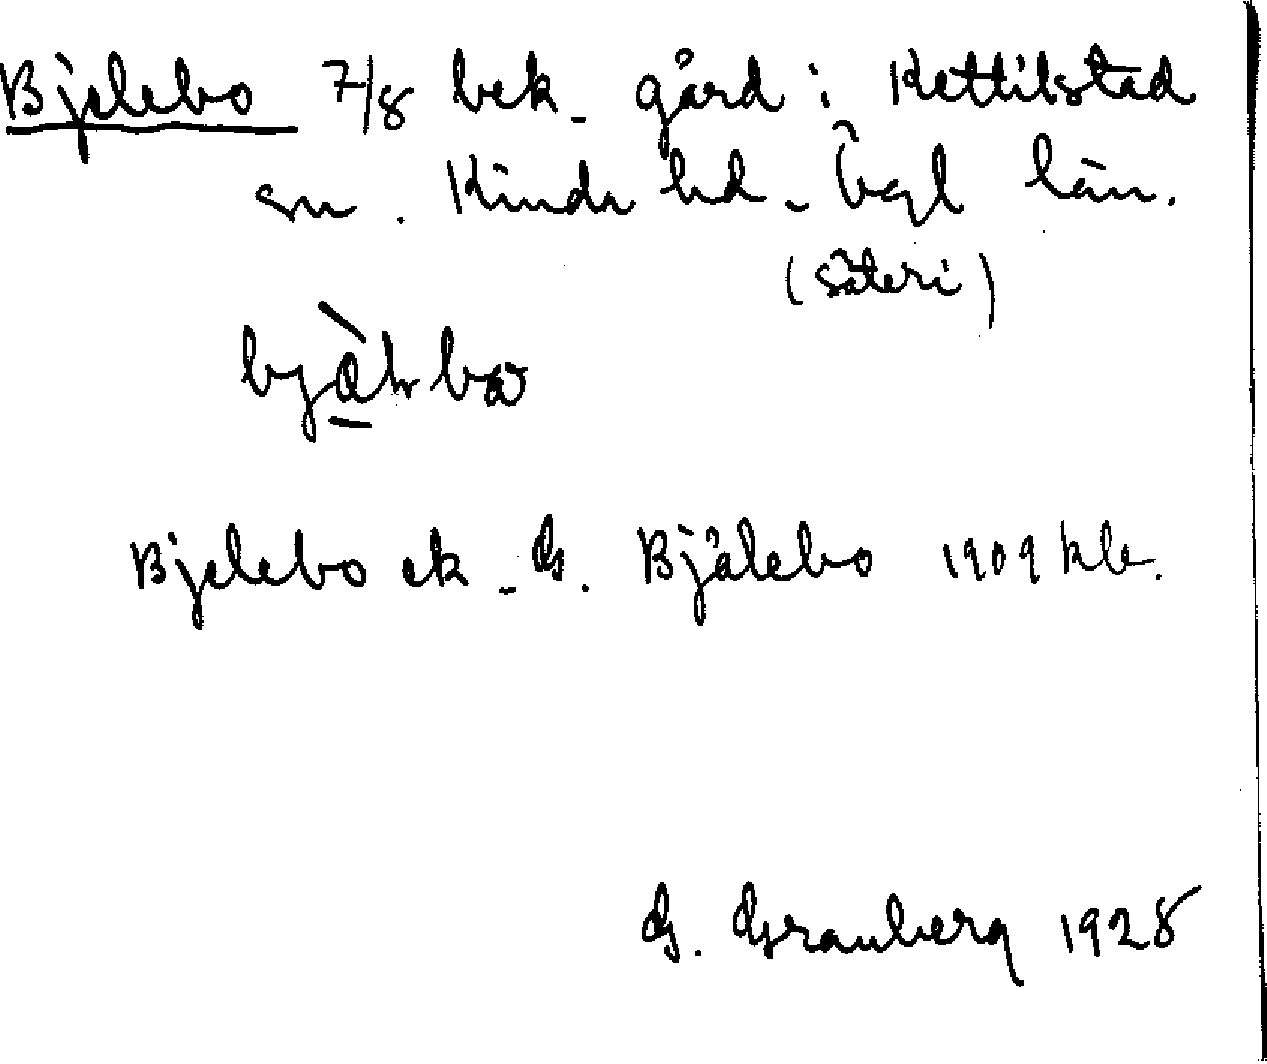 Bjelebo 7/8 bek. gård i Kettilstad
sn. Kinda hd. Ögl län.
(säteri)
Bjelebo ek. G. Bjälebo 1909 kle.
G. Granberg 1928